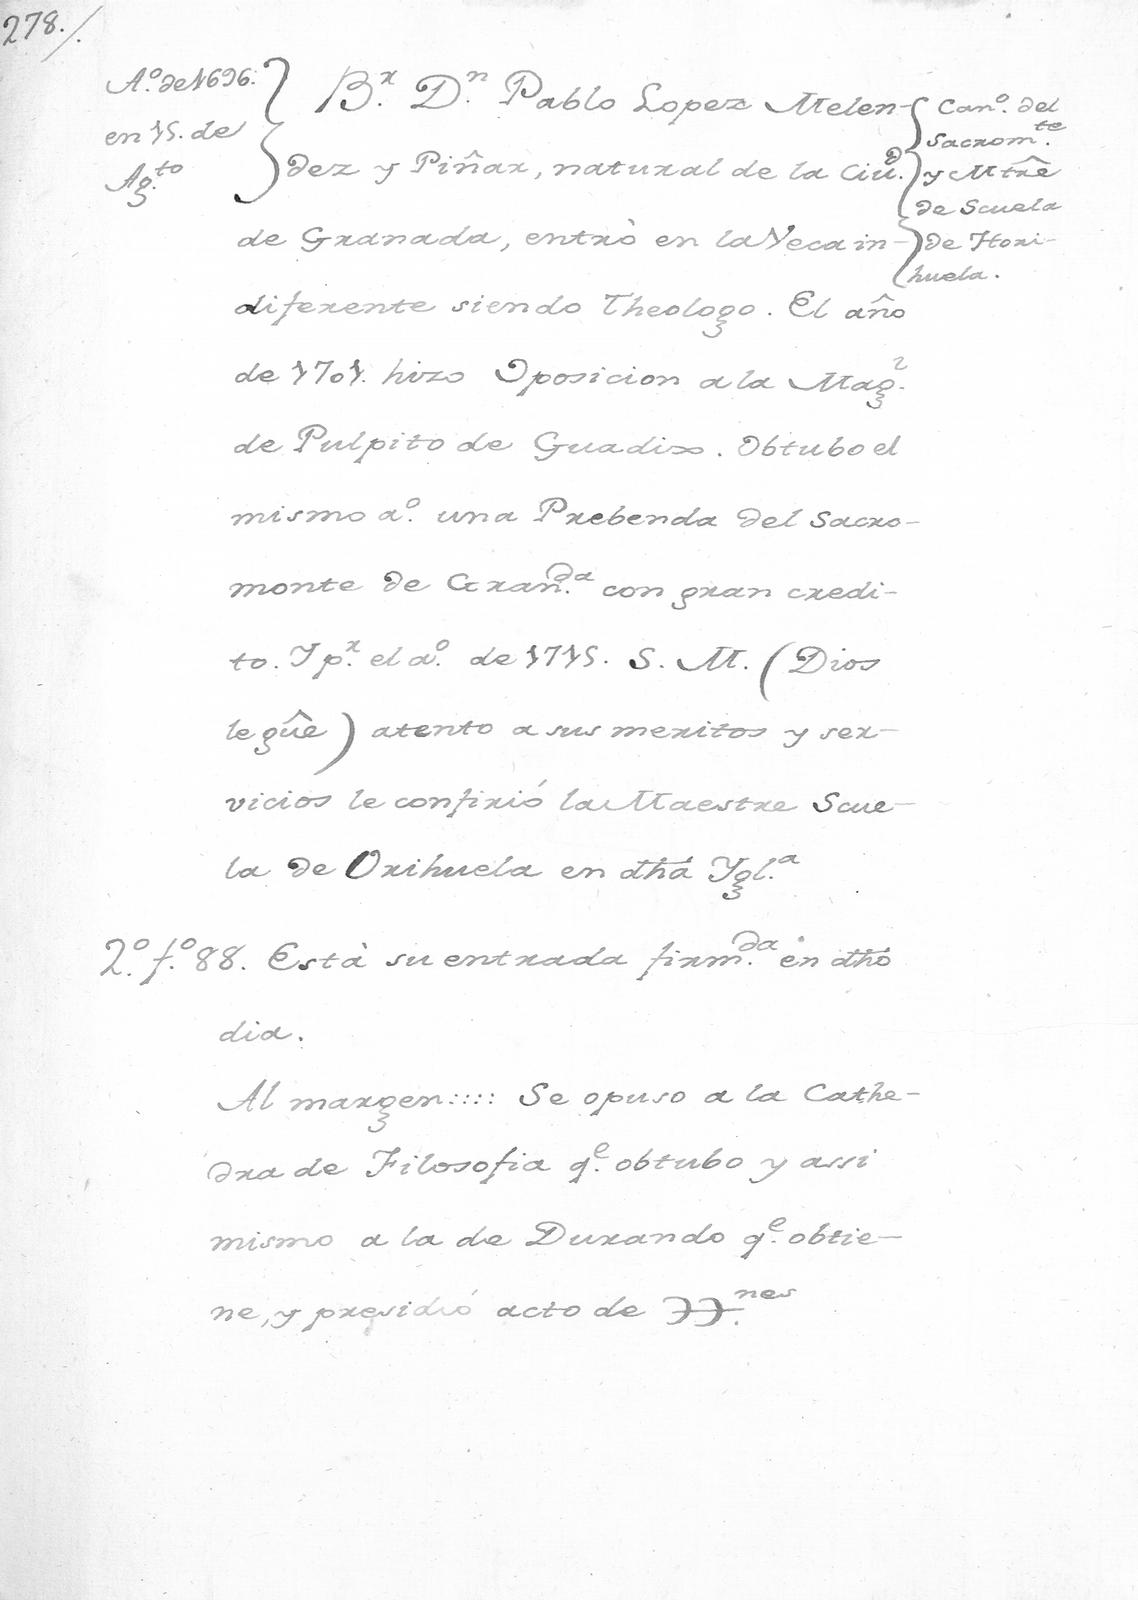 278./
Aº. de 1696.
en 15. de
Ag.to
B.r D.n Pablo Lopez Melen-
dez y Piñar, natural de la Ciu.d
de Granada, entrò en la Veca in-
diferente siendo Theologo. El año
de 1701. hizo Oposicion a la Mag.l
de Pulpito de Guadix. Obtubo el
mismo aº. una Prebenda del Sacro-
monte de Gran.da con gran credi-
to. Y p.r el aº. de 1715. S. M. (Dios
le gûe) atento a sus meritos y ser-
vicios le confirió la Maestre Scue-
la de Orihuela en dhâ Ygl.a
Canº. del
Sacrom.te
y Mtrê
de Scuela
de Hori-
huela.
2º. fº. 88. Està su entrada firm.da en dhô
dia.
Al margen:::: Se opuso a la Cathe-
dra de Filosofia q.e obtubo y assi
mismo a la de Durando q.e obtie-
ne, y presidió acto de